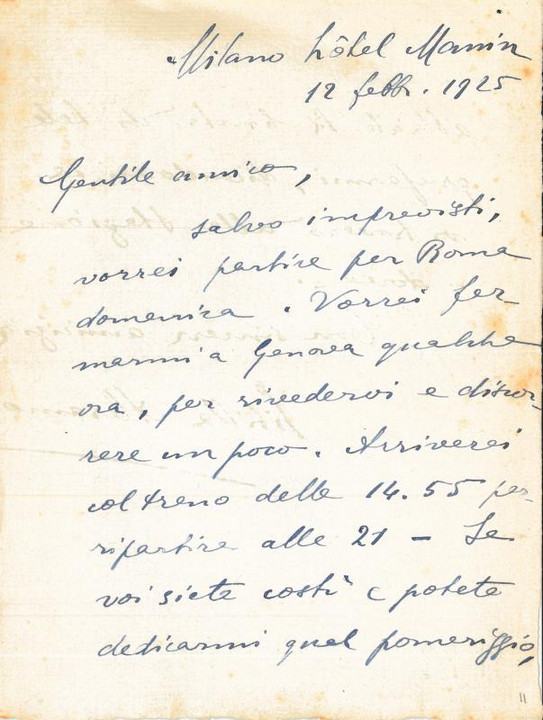 Milano hôtel Manin
12 febbr. 1925
Gentile amico,
salvo imprevisti,
vorrei partire per Roma
domenica. Vorrei fer-
marmi a Genova qualche
ora, per rivedervi e discor-
rere un poco. Arriverei
col treno delle 14.55 per
ripartire alle 21 - Se
voi siete costì e potete
dedicarmi quel pomeriggio,
11